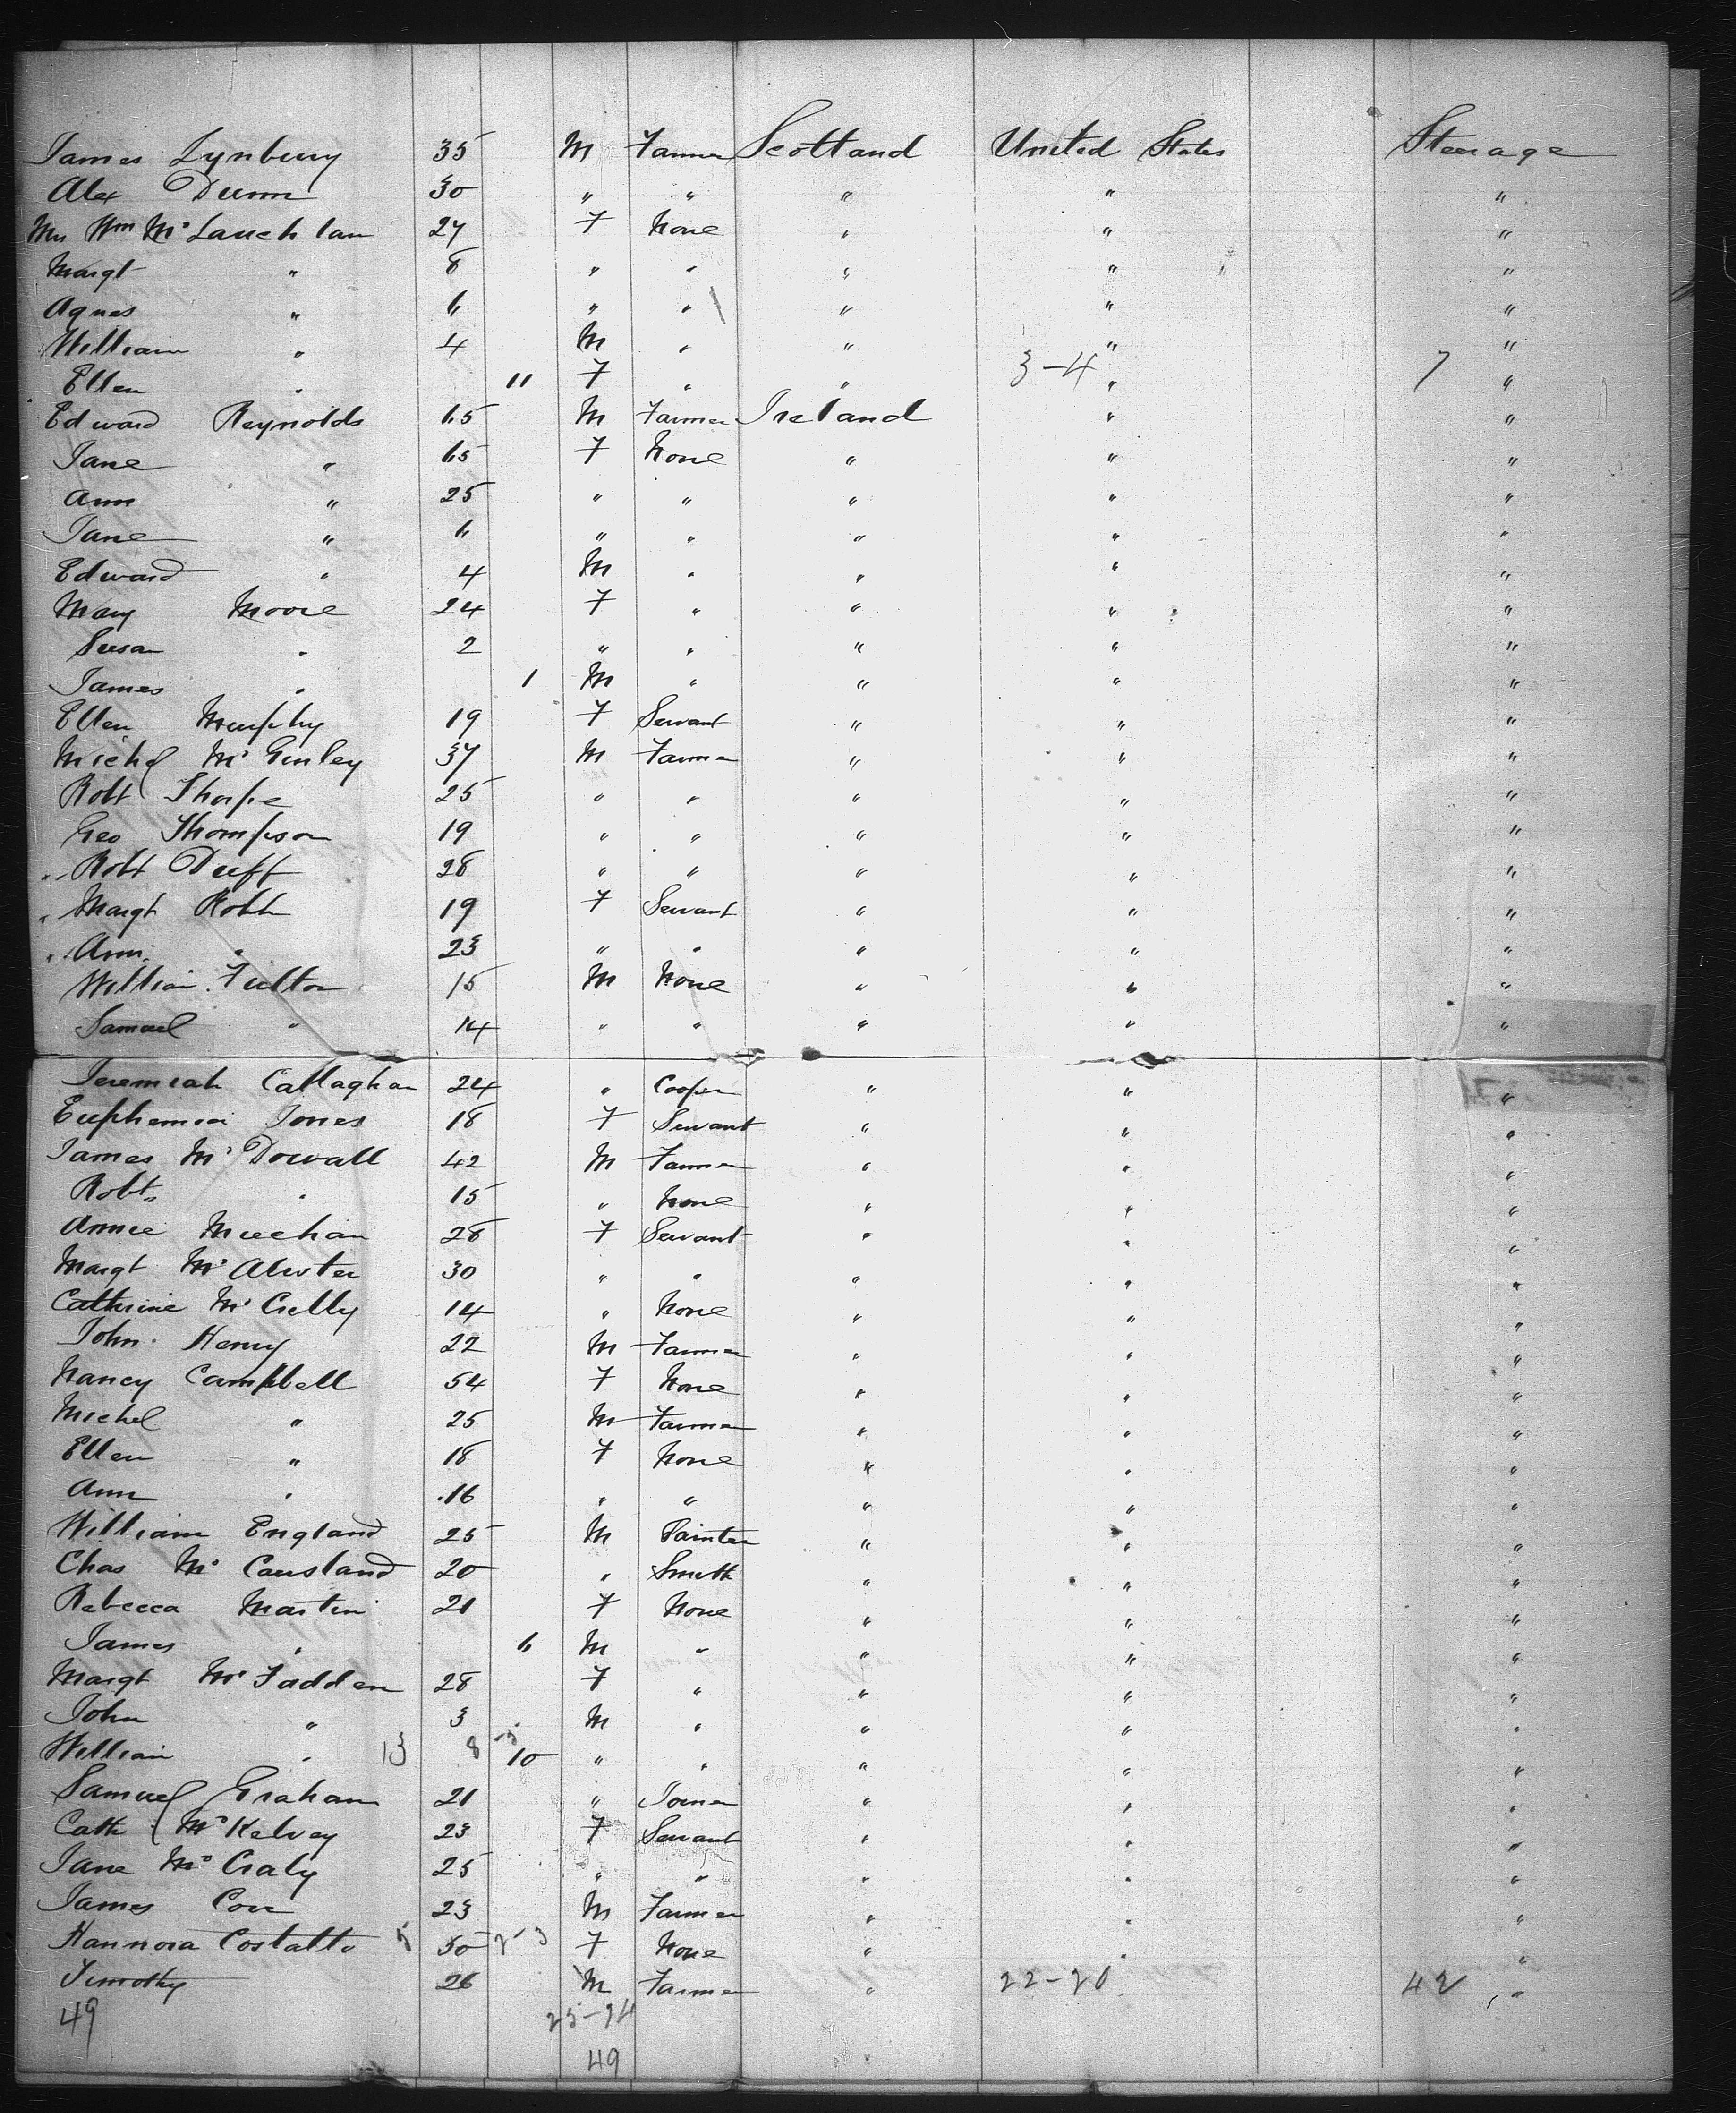 James Lynbury 35 M Farmer Scotland United States Steerage
Alex Dunn 30 " " " " "
Mrs Wm McLauchlan 27 F None " " "
Margt " 8 " " " " "
Agnes " 6 " " " " "
William " 4 M " " " "
Ellen " 11 F " " 3-4 " 7 "
Edward Reynolds 65 M Farmer Ireland " "
Jane " 65 F None " " "
Ann " 25 " " " " "
Jane " 6 " " " " "
Edward " 4 M " " " "
Mary Moore 24 F " " " "
Susan " 2 " " " " "
James " 1 M " " " "
Ellen Murphy 19 F Servant " " "
Michel McGinley 37 M Farmer " " "
Robt Thorpe 25 " " " " "
Geo Thompson 19 " " " " "
Robt Duff 28 " " " " "
Margt Robb 19 F Servant " " "
Ann " 23 " " " " "
William Fulton 15 M None " " "
Samuel " 14 " " " " "
Jeremiah Callaghan 24 " Cooper " " "
Euphemia Jones 18 F Servant " " "
James McDowall 42 M Farmer " " "
Robt " 15 " None " " "
Annie Meechan 28 F Servant " " "
Margt McAlister 30 " " " " "
Cathrine McCrelly 14 " None " " "
John Henry 22 M Farmer " " "
Nancy Campbell 54 F None " " "
Michel " 25 M Farmer " " "
Ellen " 18 F None " " "
Ann " 16 " " " " "
William England 25 M Painter " " "
Chas McCausland 20 " Smith " " "
Rebecca Martin 21 F None " " "
James " 6 M " " " "
Margt McFadden 28 F " " " "
John " 3 M " " " "
William " 13 8 10 " " " " "
Samuel Graham 21 " Joiner " " "
Cath McKelvey 23 F Servant " " "
Jane McCraly 25 " " " " "
James Corr 23 M Farmer " " "
Hannora Costallo 50 F None " " "
Timothy 26 M Farmer " 22-20 42 "
49 25-24
49